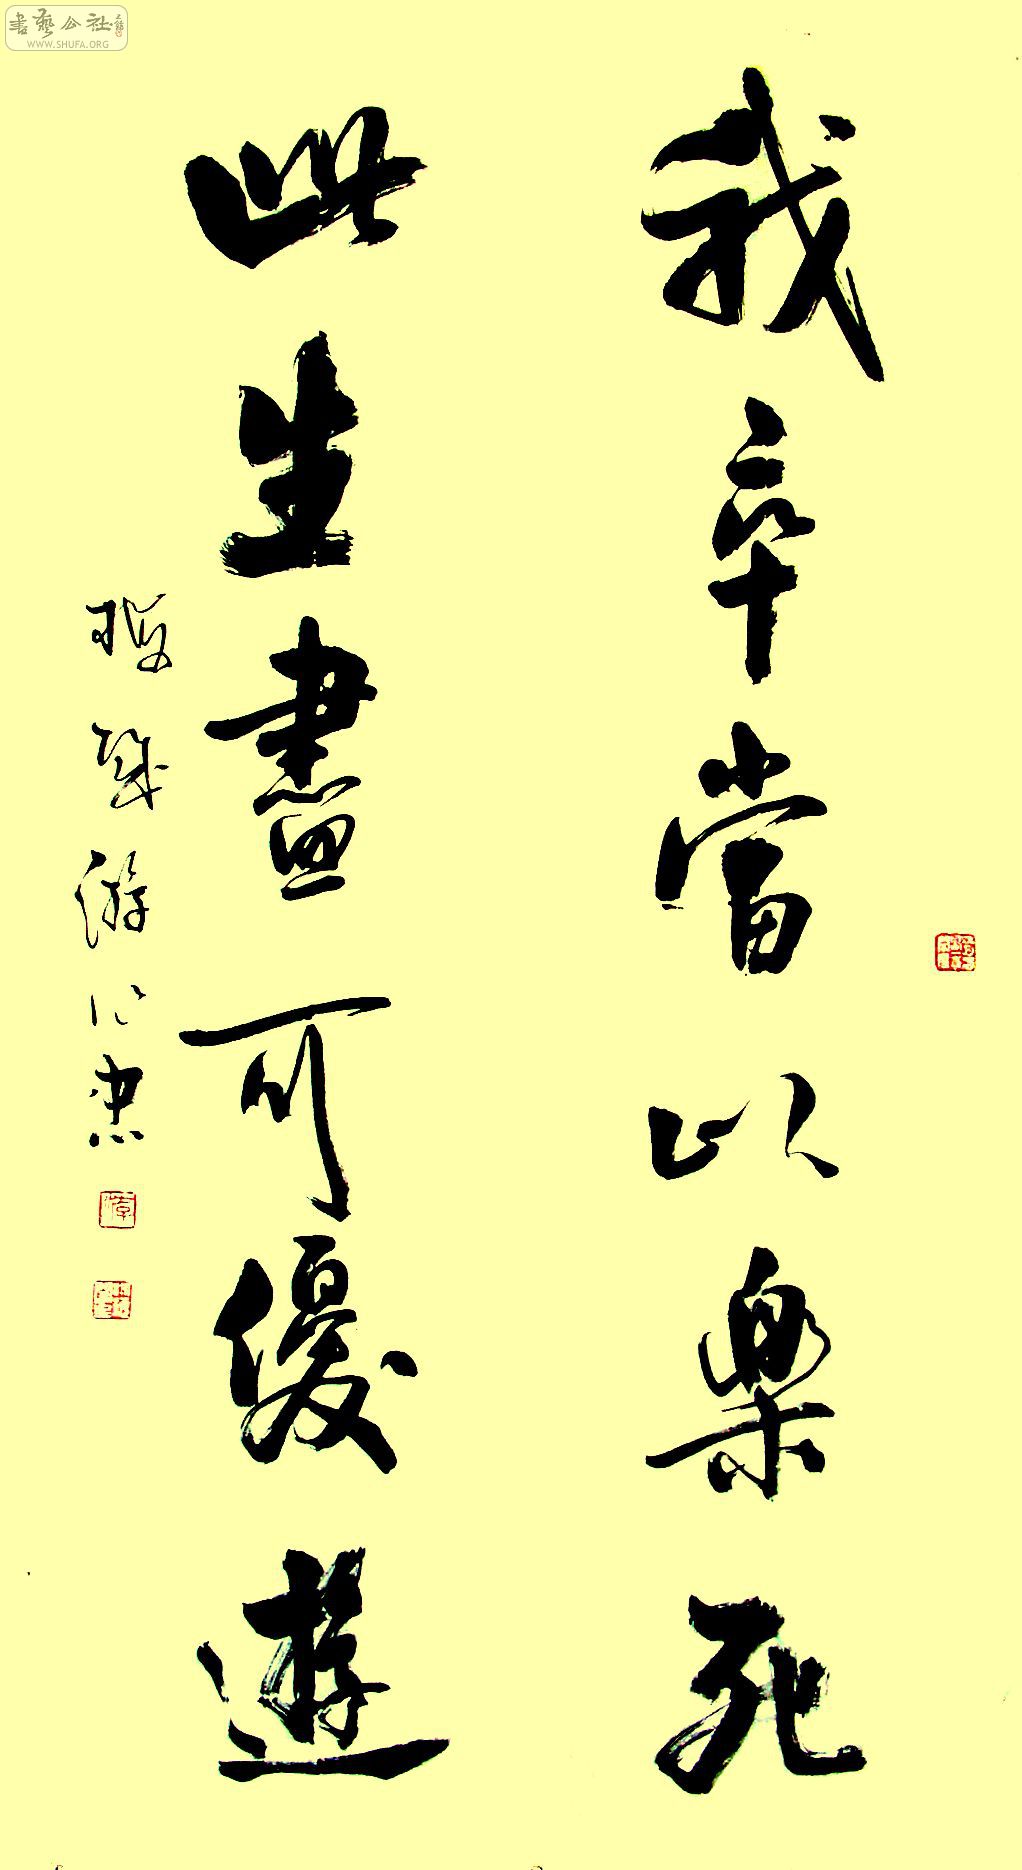 書藝公社
WWW.SHUFA.ORG
我卒當以樂死
此生盡可優遊